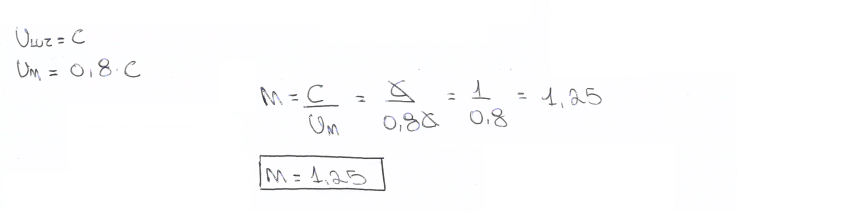 υ_luz = C
υ_M = 0,8 · C
M = C/υ_M = C/0,8C = 1/0,8 = 1,25
M = 1,25